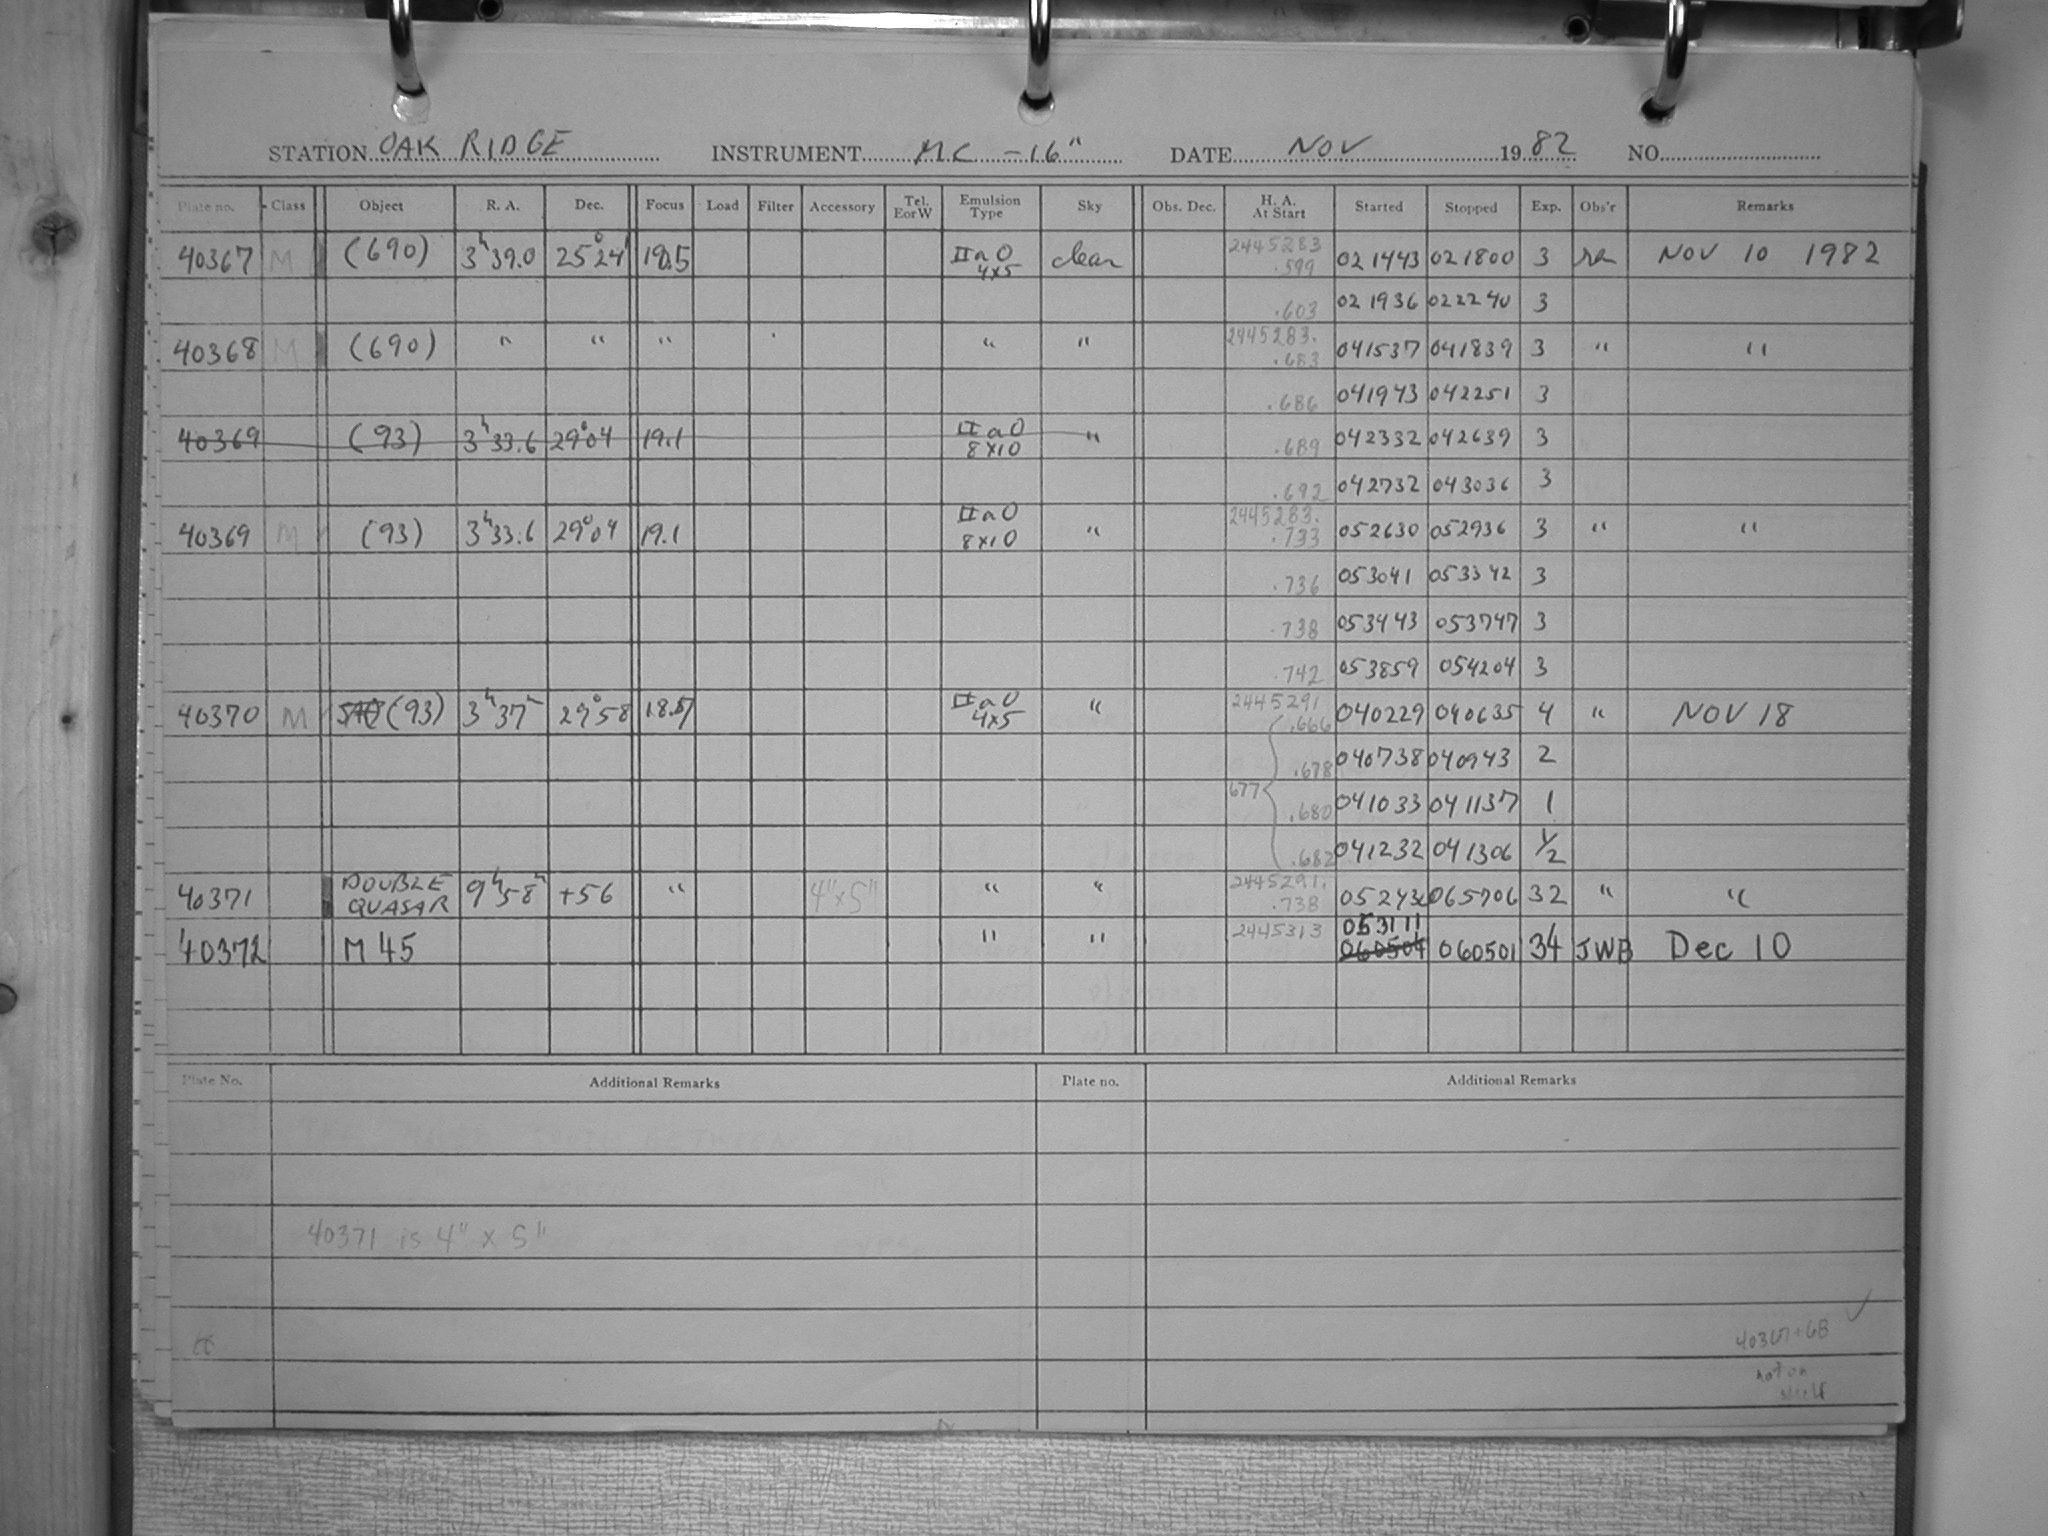 STATION OAK RIDGE INSTRUMENT MC -16" DATE NOV 1982 NO.
Plate no. Class Object R. A. Dec. Focus Load Filter Accessory Tel. EorW Emulsion Type Sky Obs. Dec. H. A. At Start Started Stopped Exp. Obs'r Remarks
40367 M (690) 3h39.0 25°24' 19.5 IIaO 4x5 clear 2445283 .599 021443 021800 3 NOV 10 1982
.603 021936 022240 3
40368 M (690) " " " " " 2445283. .683 041537 041839 3 " "
.686 041943 042251 3
40369 (93) 3h33.6 29°04 19.1 IIaO 8x10 " .689 042332 042639 3
.692 042732 043036 3
40369 M (93) 3h33.6 29°04 19.1 IIaO 8x10 " 2445283. .733 052630 052936 3 " "
.736 053041 053342 3
.738 053443 053747 3
.742 053859 054204 3
40370 M (93) 3h37m 29°58 18.5 IIaO 4x5 " 2445291 .666 040229 040635 4 " NOV 18
.678 040738 040943 2
677 .680 041033 041137 1
.682 041232 041306 1/2
40371 DOUBLE QUASAR 9h58m +56 " 4"x5" " " 2445291. .738 065706 32 " "
40372 M 45 " " 2445313 053111 060504 060501 34 JWB Dec 10
Plate No. Additional Remarks Plate no. Additional Remarks
40371 is 4" x 5"
40367+68
not on
shelf